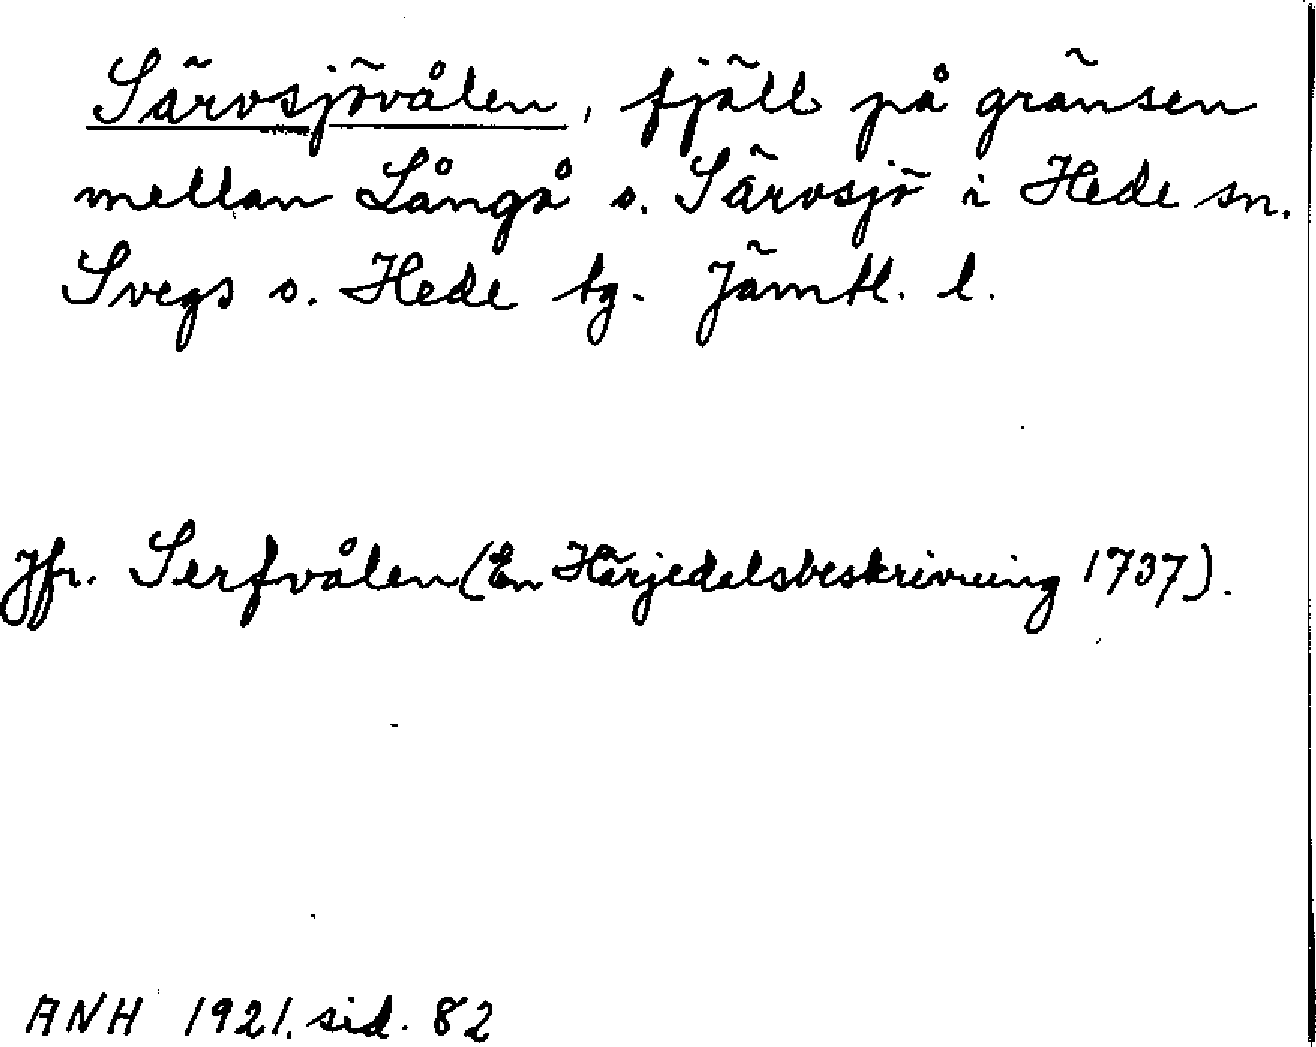 Särvsjövålen, fjäll på gränsen
mellan Långå o. Särvsjö i Hede sn.
Svegs o. Hede tg. Jämtl. l.
Jfr. Serfvålen (En Härjedalsbeskrivning 1737).
ANH 1921. sid. 82